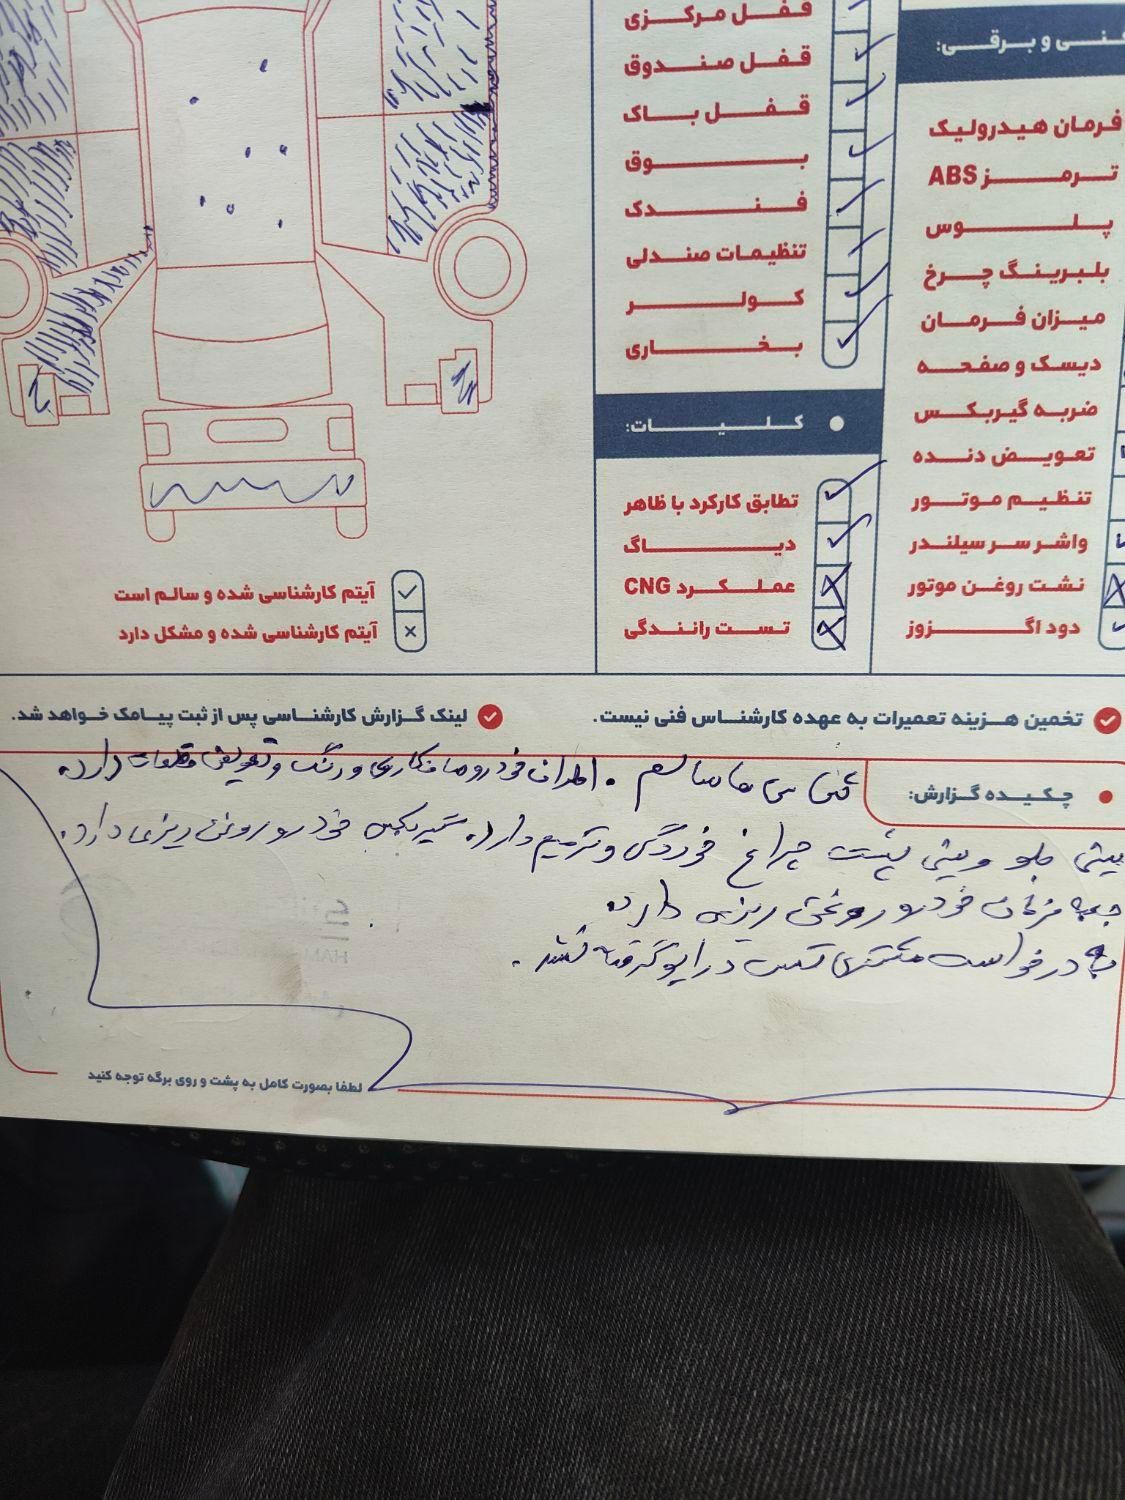 کنی و برقی:
فرمان هیدرولیک
ترمز ABS
پلوس
بلبرینگ چرخ
میزان فرمان
دیسک و صفحه
ضربه گیربکس
تعویض دنده
تنظیم موتور
واشر سر سیلندر
نشت روغن موتور
دود اگزوز
قفل مرکزی
قفل صندوق
قفل باک
بوق
فندک
تنظیمات صندلی
کولر
بخاری
کلیات:
تطابق کارکرد با ظاهر
دیاگ
عملکرد CNG
تست رانندگی
آیتم کارشناسی شده و سالم است
آیتم کارشناسی شده و مشکل دارد
تخمین هزینه تعمیرات به عهده کارشناس فنی نیست.
لینک گزارش کارشناسی پس از ثبت پیامک خواهد شد.
چکیده گزارش:
شاسی ها سالم . اطراف خودرو صافکاری و رنگ و تعویض قطعات دارد.
سینی جلو و سینی پشت چراغ خوردگی و ترمیم دارد. گیربکس خودرو روغن ریزی دارد.
جعبه فرمان خودرو روغن ریزی دارد.
به درخواست مشتری تست درایو گرفته نشد .
لطفا بصورت کامل به پشت و روی برگه توجه کنید